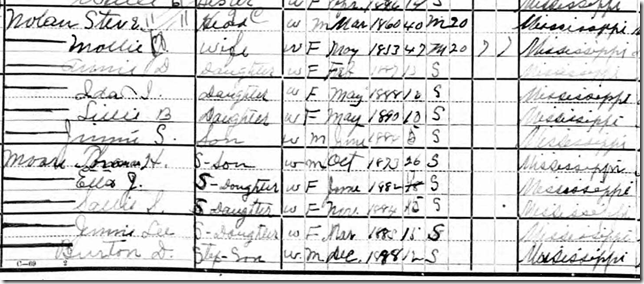 Sister W F 14 S Mississippi
Nolan Steve " " Head W M Mar 1860 40 M 20 Mississippi
Mollie Wife W F May 1853 47 M 20 7 7 Mississippi
Annie D Daughter W F Feb S Mississippi
Ida I. Daughter W F May 1888 12 S Mississippi
Lillie B Daughter W F May 1890 10 S Mississippi
Jimmie S. Son W M June S Mississippi
Thomas H. S-Son W M Oct 1873 26 S Mississippi
Ella J. S-Daughter W F June 1882 S Mississippi
Sallie S-Daughter W F Nov. 1884 15 S Mississippi
Jennie Lee S-Daughter W F Mar 1885 15 S Mississippi
Burton D. Step-Son W M Dec. 12 S Mississippi